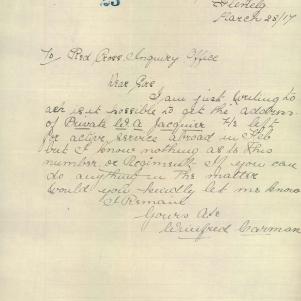 Glenelg
March 28/17
To Red Cross Inquiry Office
Dear Sirs
I am just writing to
ask is it possible to get the address
of Private W.A. Jacquier he left
for active service abroad in Feb
but I know nothing as to his
number or Regiment If you can
do anything in the matter
would you kindly let me know
I Remain
Yours &c
Winifred Carman